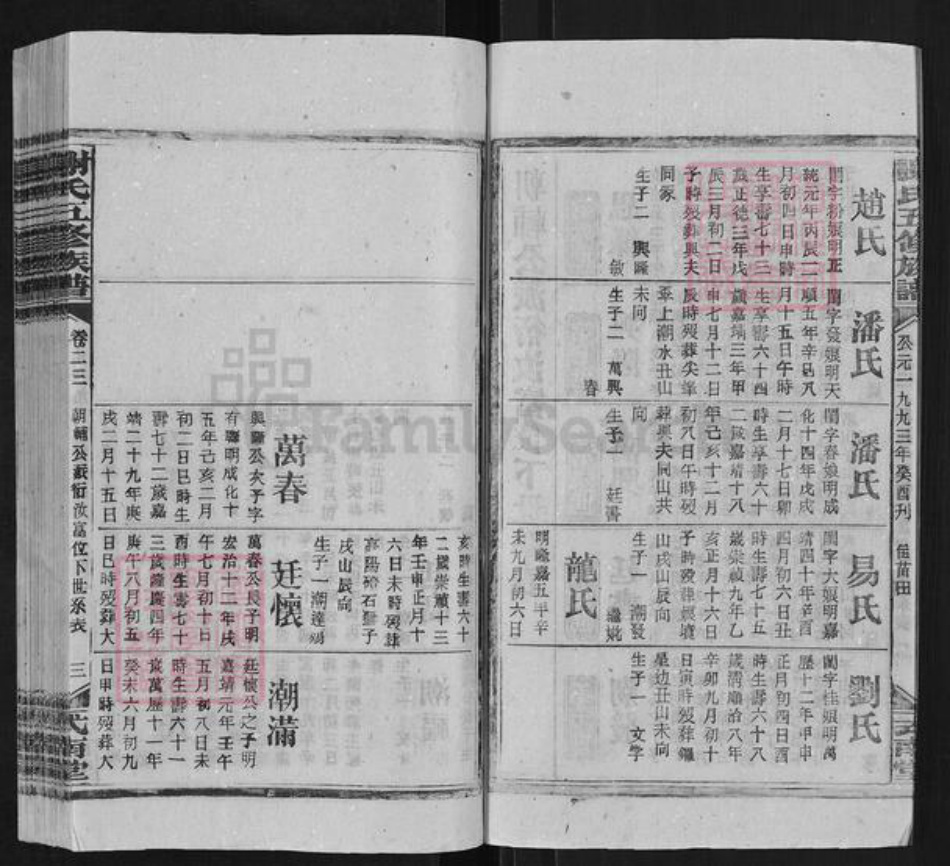 謝氏五修族譜
公元一九九三年癸酉刊
趙氏
閨字粉娘明正
統元年丙辰二
月初四日申時
生享壽七十三
歲正德三年戊
辰三月初二日
子時歿葬與夫
同冢
生子二 興隆
敏
潘氏
閨字發娘明天
順五年辛巳八
月十五日午時
生享壽六十四
歲嘉靖三年甲
申七月十二日
辰時歿葬尖峯
垂上潮水丑山
未向
生子二 萬興
春
潘氏
閨字春娘明成
化十四年戊戌
二月十七日卯
時生享壽六十
二歲嘉靖十八
年己亥十二月
初八日午時歿
葬與夫同山共
向
生子一 廷書
易氏
閨字大娘明嘉
靖四十年辛酉
四月初六日丑
時生壽七十五
歲崇禎九年乙
亥正月十六日
子時歿葬
山戌山辰向
生子一 潮發
繼娶
龍氏
明隆嘉五年辛
未九月初六日
劉氏
閨字桂娘明萬
曆十二年甲申
正月初四日酉
時生壽六十八
歲清順治八年
辛卯九月初十
日寅時歿葬
星边丑山未向
生子一 文学
亥時生壽六十
二歲崇禎十三
年壬申正月十
六日未時歿葬
高陽磴石獅子
戌山辰向
生子一潮達
萬春
興隆公次子字
有聯明成化十
五年己亥二月
初二日巳時生
壽七十二歲嘉
靖二十九年庚
戌二月十五日
廷懷
萬春公長子明
宏治十二年戊
午七月初十日
酉時生壽七十
三歲隆慶四年
庚午八月初五
日巳時歿葬大
潮滿
廷懷公之子明
嘉靖元年壬午
五月初八日未
時生壽六十一
歲萬曆十一年
癸未六月初九
日甲時歿葬大
謝氏五修族譜
卷二三
朝輔公派衍汝富位下世系表
三